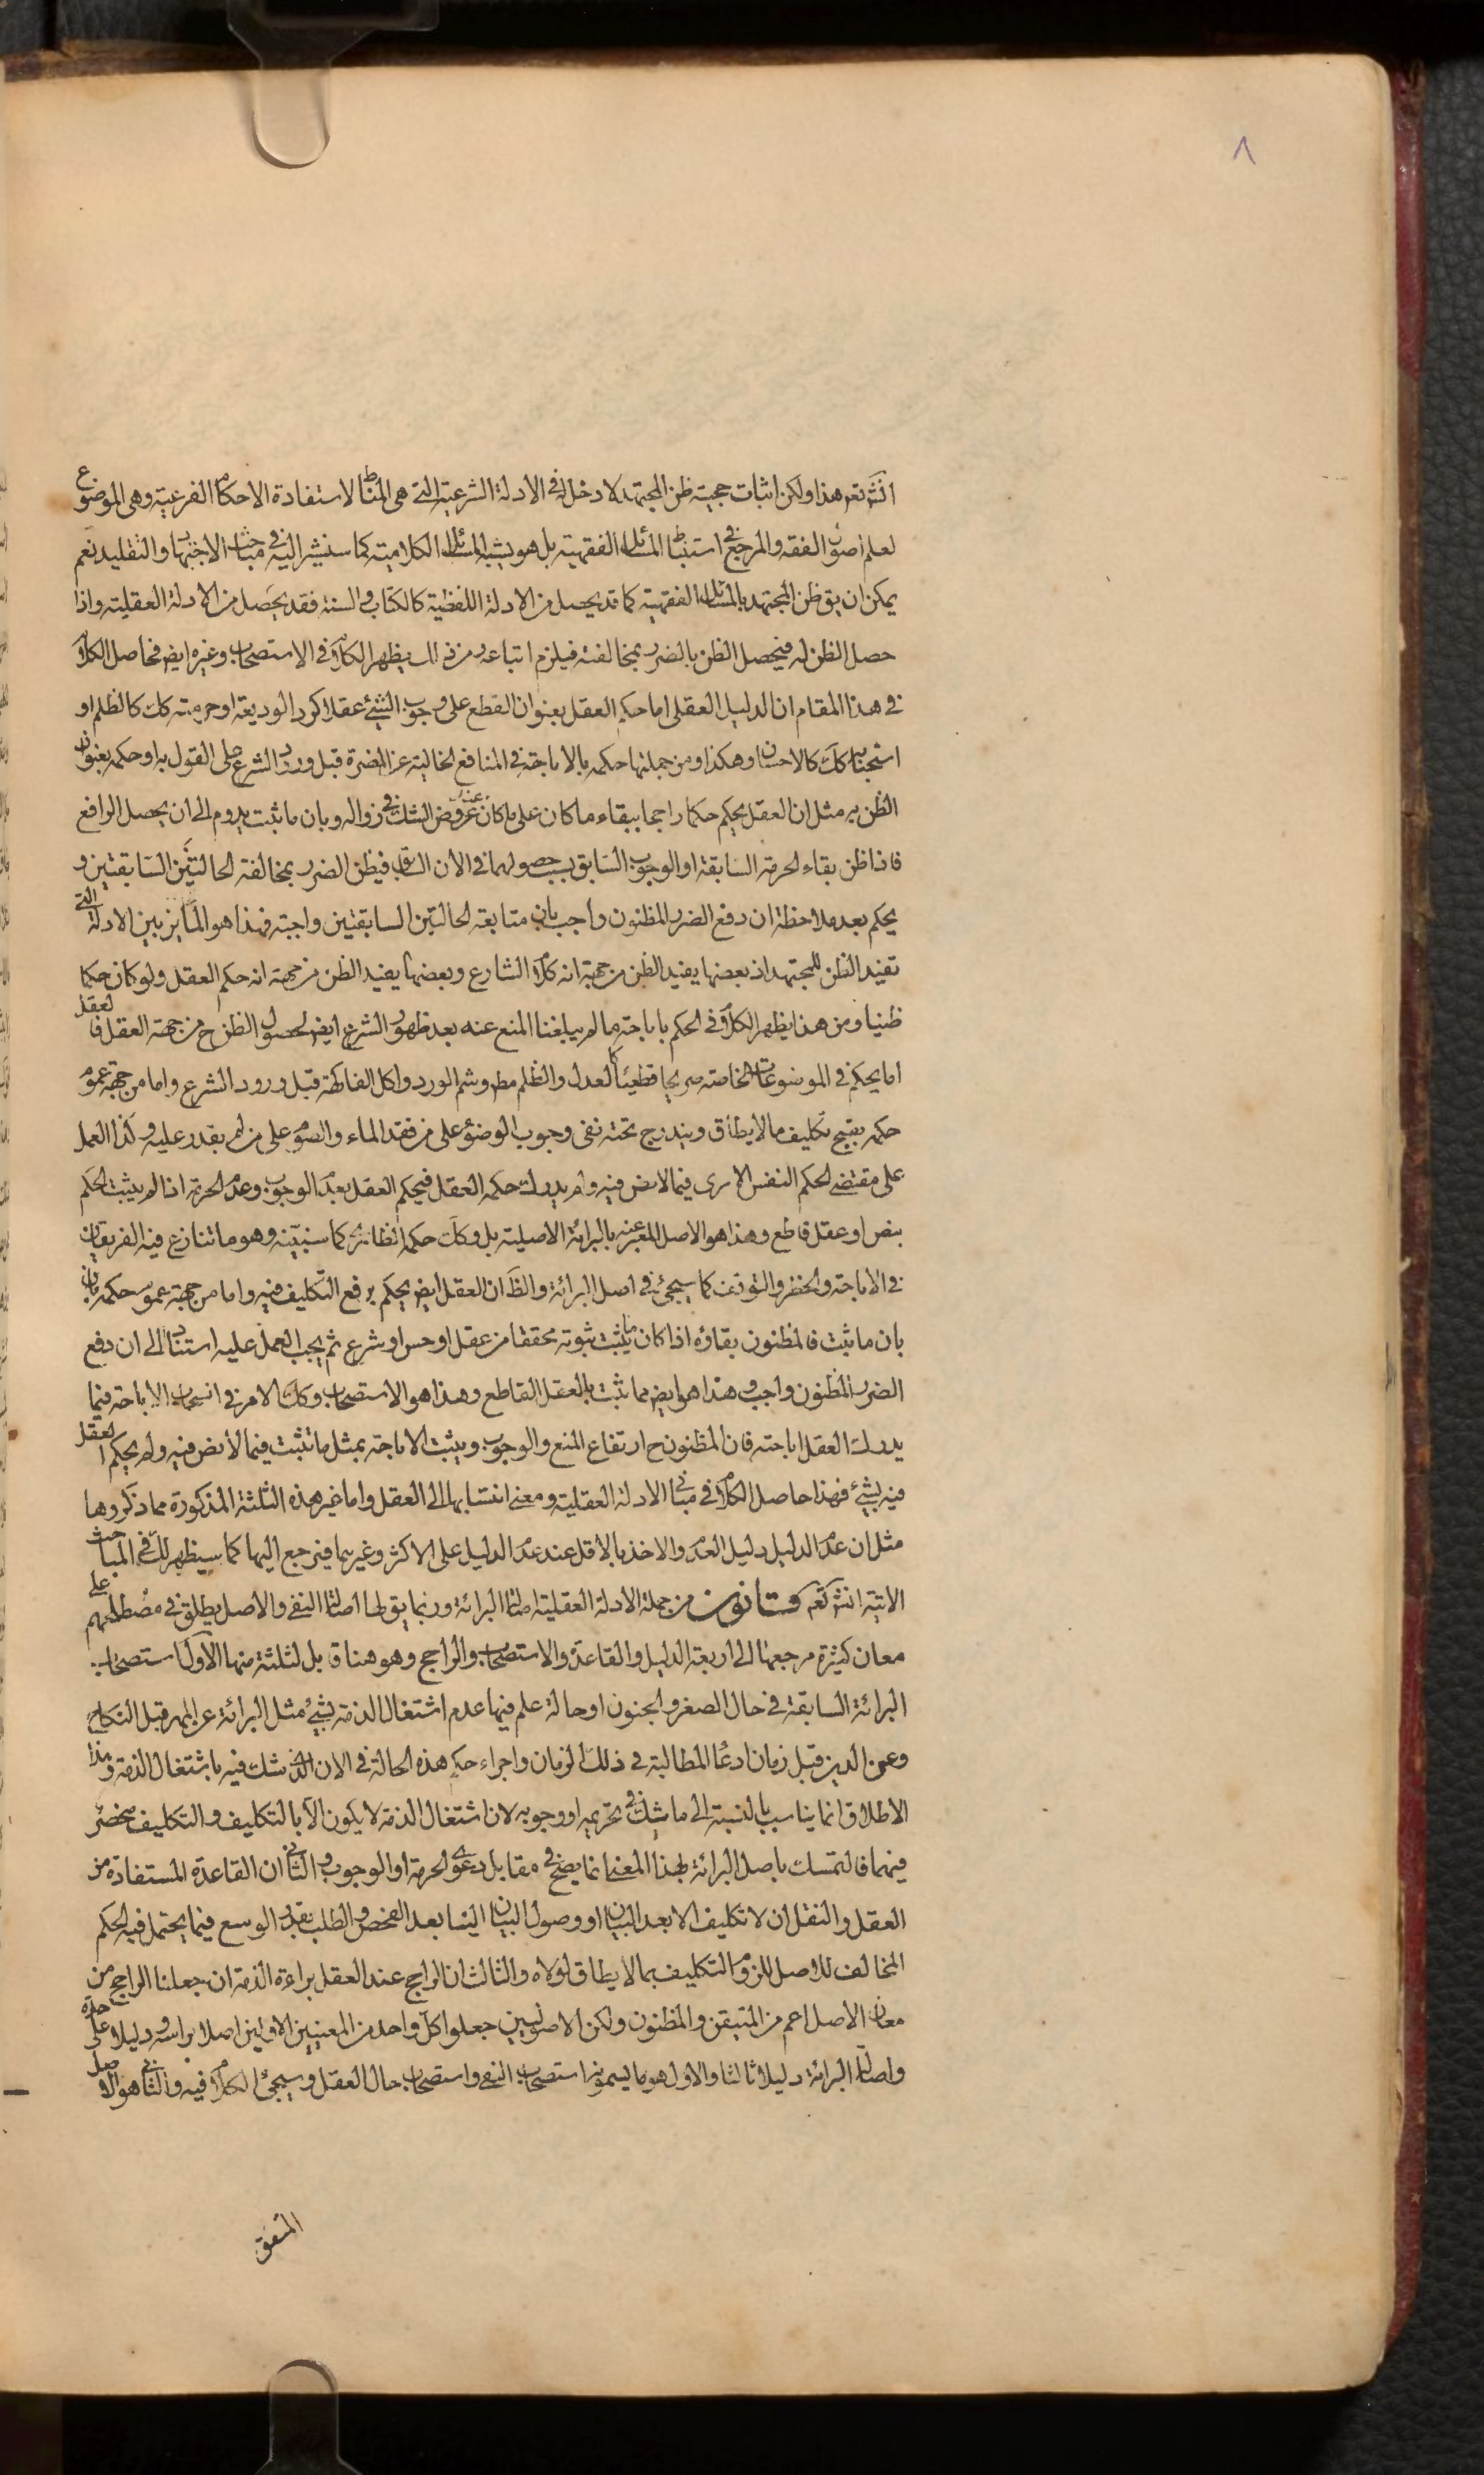 ٨
انشَ تعَ هذا ولكن اثبات حجية ظن المجتهد لا دخل له في الادلة الشرعية التي هي المناط لاستفادة الاحكام الفرعية وهي الموضوع
لعلم اصول الفقه والمرجع في استنباط المسائل الفقهية بل هو يشبه المسائل الكلامية كما سنشير اليه في مباحث الاجتهاد والتقليد نعم
يمكن ان يق ظن المجتهد بالمسائل الفقهية كما قد يحصل من الادلة اللفظية كالكتاب والسنة فقد يحصل من الادلة العقلية واذا
حصل الظن له فيحصل الظن بالضرر بمخالفته فيلزم اتباعه ومن ذلك يظهر الكلام في الاستصحاب وغيره ايض فحاصل الكلام
في هذا المقام ان الدليل العقلي اما حكم العقل بعنوان القطع على وجوب الشيء عقلا كرد الوديعة او حرمته كك كالظلم او
استحبابه كك كالاحسان وهكذا ومن جملتها حكمه بالاباحة في المنافع الخالية عن المضرة قبل ورود الشرع على القول به او حكمه بعنوان
الظن به مثل ان العقل يحكم حكما راجحا ببقاء ما كان على ما كان عند عروض الشك في زواله وبان ما ثبت يدوم الى ان يحصل الرافع
فاذا ظن بقاء الحرمة السابقة او الوجوب السابق بسبب حصولهما في الان السابق فيظن الضرر بمخالفة الحالتين السابقتين و
يحكم بعد ملاحظة ان دفع الضرر المظنون واجب بان متابعة الحالتين السابقتين واجبة فهذا هو المايز بين الادلة التي
تفيد الظن للمجتهد اذ بعضها يفيد الظن من جهة انه كلام الشارع وبعضها يفيد الظن من جهة انه حكم العقل ولو كان حكما
ظنيا ومن هذا يظهر الكلام في الحكم باباحة ما لم يبلغنا المنع عنه بعد ظهور الشرع ايض لحصول الظن ح من جهة العقل فالعقل
اما يحكم في الموضوعات الخاصة صريحا قطعيا كالعدل والظلم مط وشم الورد واكل الفاكهة قبل ورود الشرع واما من جهة عموم
حكمه بقبح تكليف ما لا يطاق ويندرج تحته نفي وجوب الوضوء على من فقد الماء والصوم على من لم يقدر عليه وكذا العمل
على مقتضى الحكم النفس الامري فيما لا نص فيه ولم يدرك حكمه العقل فيحكم العقل بعدم الوجوب وعدم الحرمة اذا لم يثبت الحكم
بنص او عقل قاطع وهذا هو الاصل المعبر عنه بالبرائة الاصلية بل وكك حكم انظاره كما سنبينه وهو ما تنازع فيه الفريقان
في الاباحة والحظر والتوقف كما سيجئ في اصل البرائة والظَ ان العقل ايض يحكم برفع التكليف فيه واما من جهة عموم حكمه بان
بان ما ثبت فالمظنون بقاؤه اذا كان ما يثبت ثبوته محققا من عقل او حس او شرع ثم يجب العمل عليه استنادا الى ان دفع
الضرر المظنون واجب وهذا هو ايض مما ثبت بالعقل القاطع وهذا هو الاستصحاب وكك الامر في انسحاب الاباحة فيما
يدرك العقل اباحته فان المظنون ح ارتفاع المنع والوجوب ويثبت الاباحة بمثل ما تثبت فيما لا نص فيه ولم يحكم العقل
فيه بشيء فهذا حاصل الكلام في مباني الادلة العقلية ومعنى انتسابها الى العقل واما غير هذه الثلثة المذكورة مما ذكروها
مثل ان عدم الدليل دليل العدم والاخذ بالاقل عند عدم الدليل على الاكثر وغيرهما فيرجع اليها كما سيظهر لك في المباحث
الاتية انشَ تعَ قانون من جملة الادلة العقلية اصالة البرائة وربما يق لها اصالة النفي والاصل يطلق في مصطلحهم على
معان كثيرة مرجعها الى اربعة الدليل والقاعدة والاستصحاب والراجح وهو هنا قابل لثلثة منها الاول استصحاب
البرائة السابقة في حال الصغر والجنون او حالة علم فيها عدم اشتغال الذمة بشيء مثل البرائة عن المهر قبل النكاح
وعن الدين قبل زمان ادعاء المطالبة في ذلك الزمان واجراء حكم هذه الحالة في الان الذي شك فيه باشتغال الذمة وهذا
الاطلاق انما يناسب بالنسبة الى ما شك في تحريمه او وجوبه لان اشتغال الذمة لا يكون الا بالتكليف والتكليف منحصر
فيهما فالتمسك باصل البرائة بهذا المعنى انما يصح في مقابل دعوى الحرمة او الوجوب والثاني ان القاعدة المستفادة من
العقل والنقل ان لا تكليف الا بعد البيان او وصول البيان الينا بعد الفحص والطلب بقدر الوسع فيما يحتمل فيه الحكم
المخالف للاصل للزوم التكليف بما لا يطاق لولاه والثالث ان الراجح عند العقل براءة الذمة ان جعلنا الراجح من
معاني الاصل اعم من المتيقن والمظنون ولكن الاصوليين جعلوا كل واحد من المعنيين الاولين اصلا براسه ودليلا على حدة
واصالة البرائة دليلا ثالثا والاول هو ما يسمونه استصحاب النفي واستصحاب حال العقل وسيجئ الكلام فيه والثاني هو الاصل
المتفق